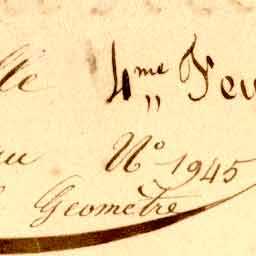 lle 4me Feu
au No 1945
Geomètre